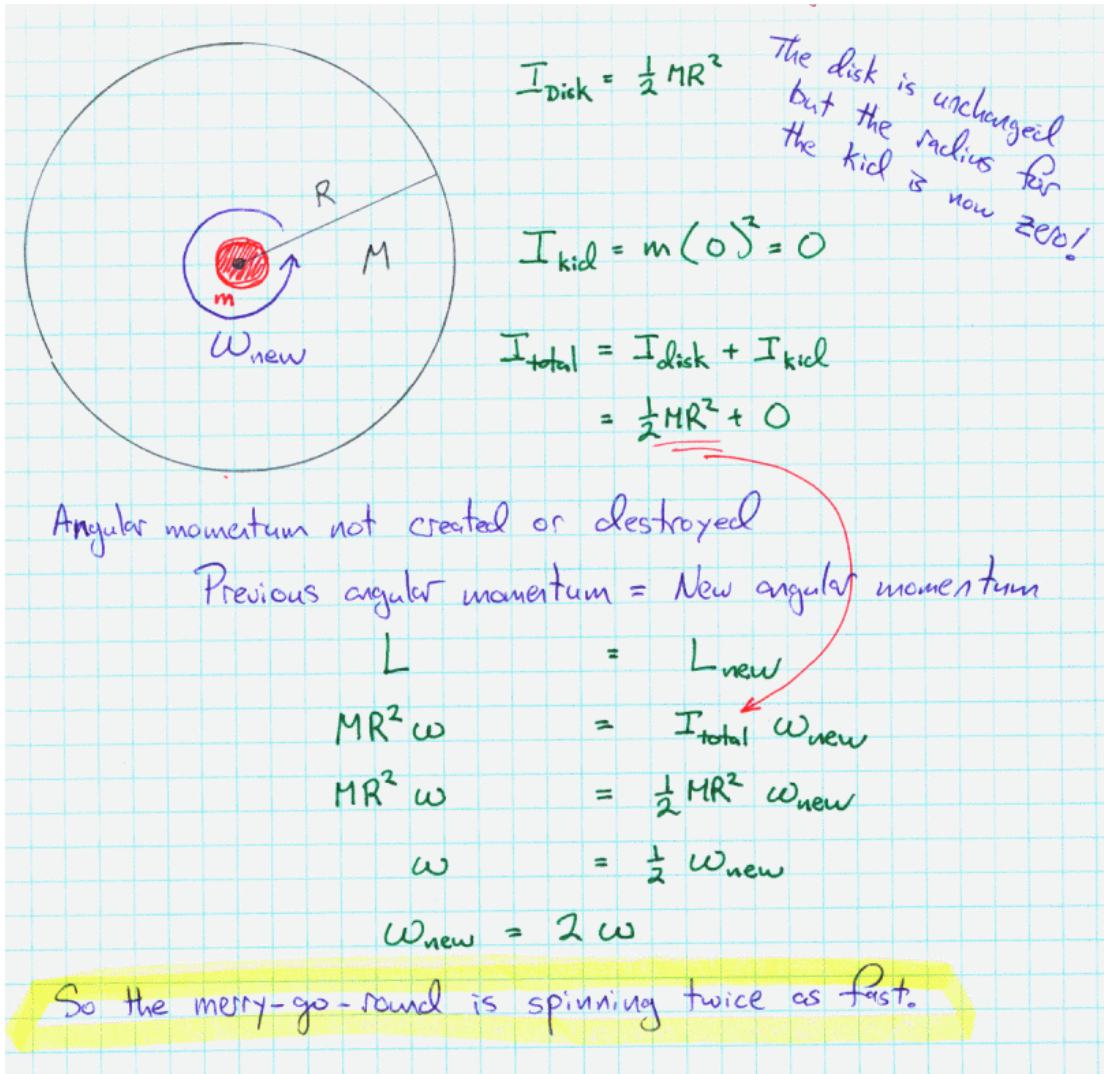 I_Disk = 1/2 MR²
The disk is unchanged
but the radius for
the kid is now zero!
R
M
m
ω_new
I_kid = m(0)² = 0
I_total = I_disk + I_kid
= 1/2 MR² + 0
Angular momentum not created or destroyed
Previous angular momentum = New angular momentum
L = L_new
MR² ω = I_total ω_new
MR² ω = 1/2 MR² ω_new
ω = 1/2 ω_new
ω_new = 2 ω
So the merry-go-round is spinning twice as fast.